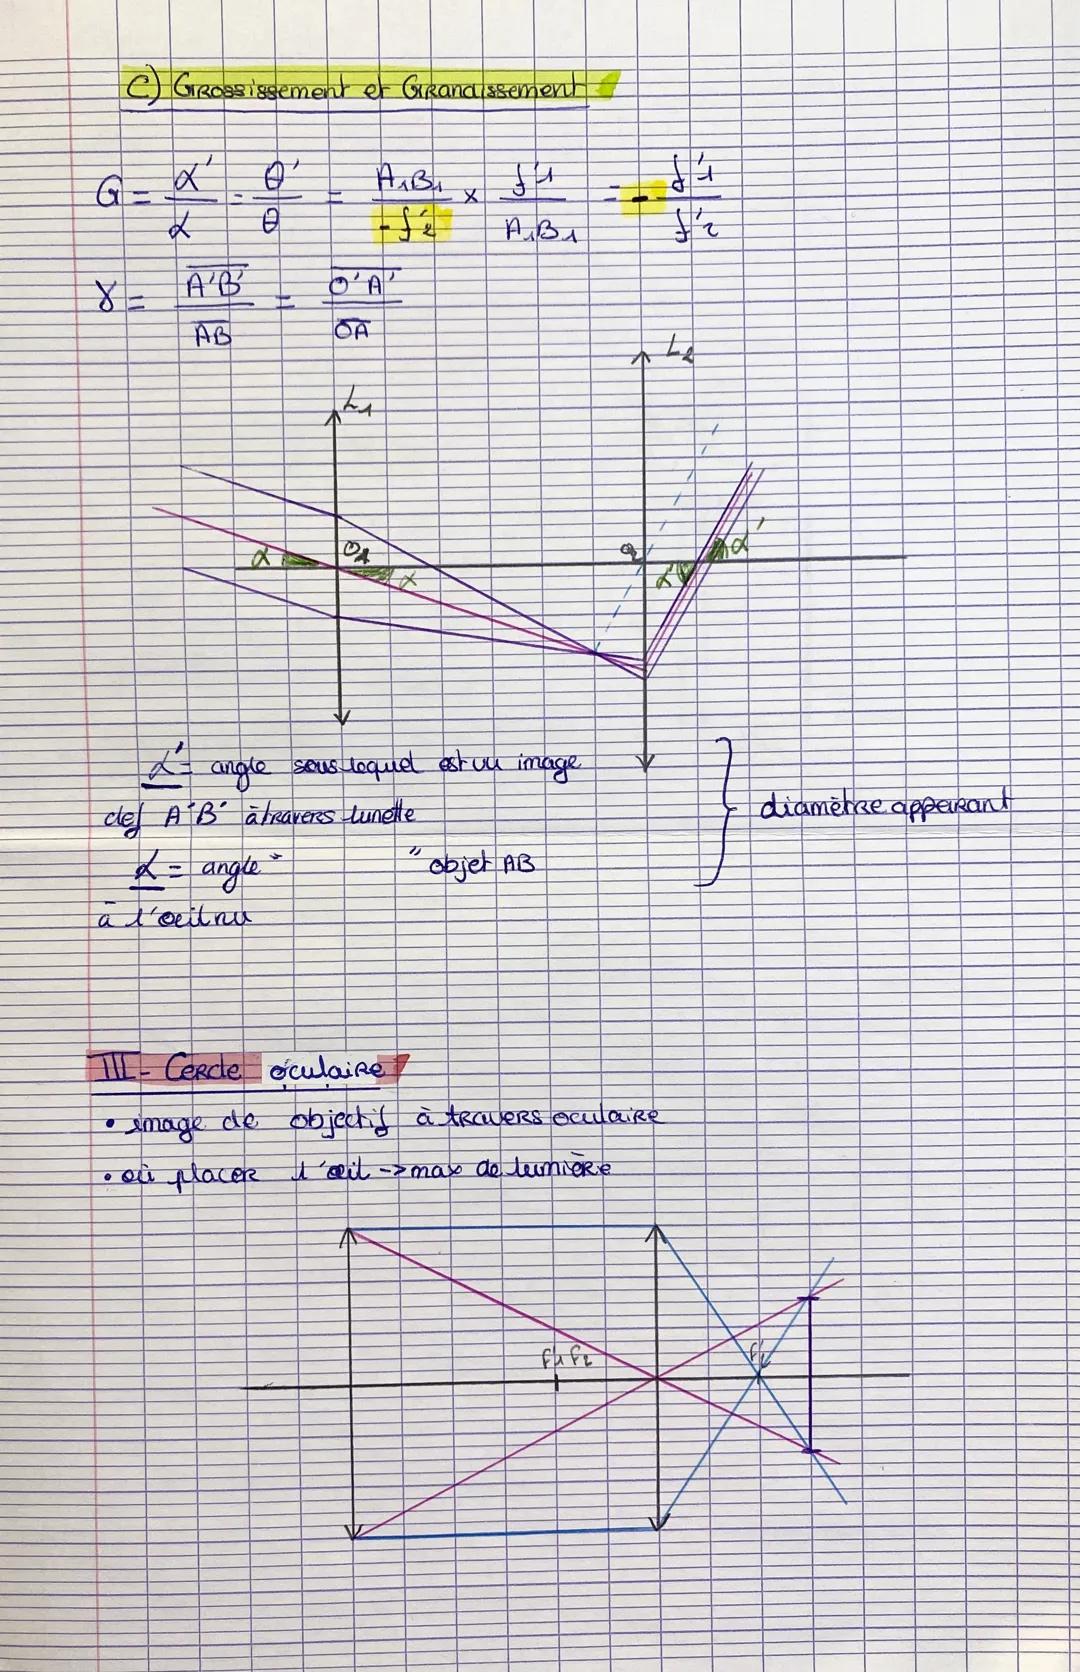 C) Grossissement et Grandissement
G = α'/α = θ'/θ = A₁B₁/-f'₂ × f'₁/A₁B₁ = - f'₁/f'₂
γ = A'B'/AB = O'A'/OA
L₂
L₁
α O₁ α
α' α'
α' = angle sous lequel est vu image
def A'B' à travers lunette
diamètre apparant
α = angle " " objet AB
à l'oeil nu
III - Cercle oculaire
• image de objectif à travers oculaire
• où placer l'œil -> max de lumière
F'₁ F₂
F'₂